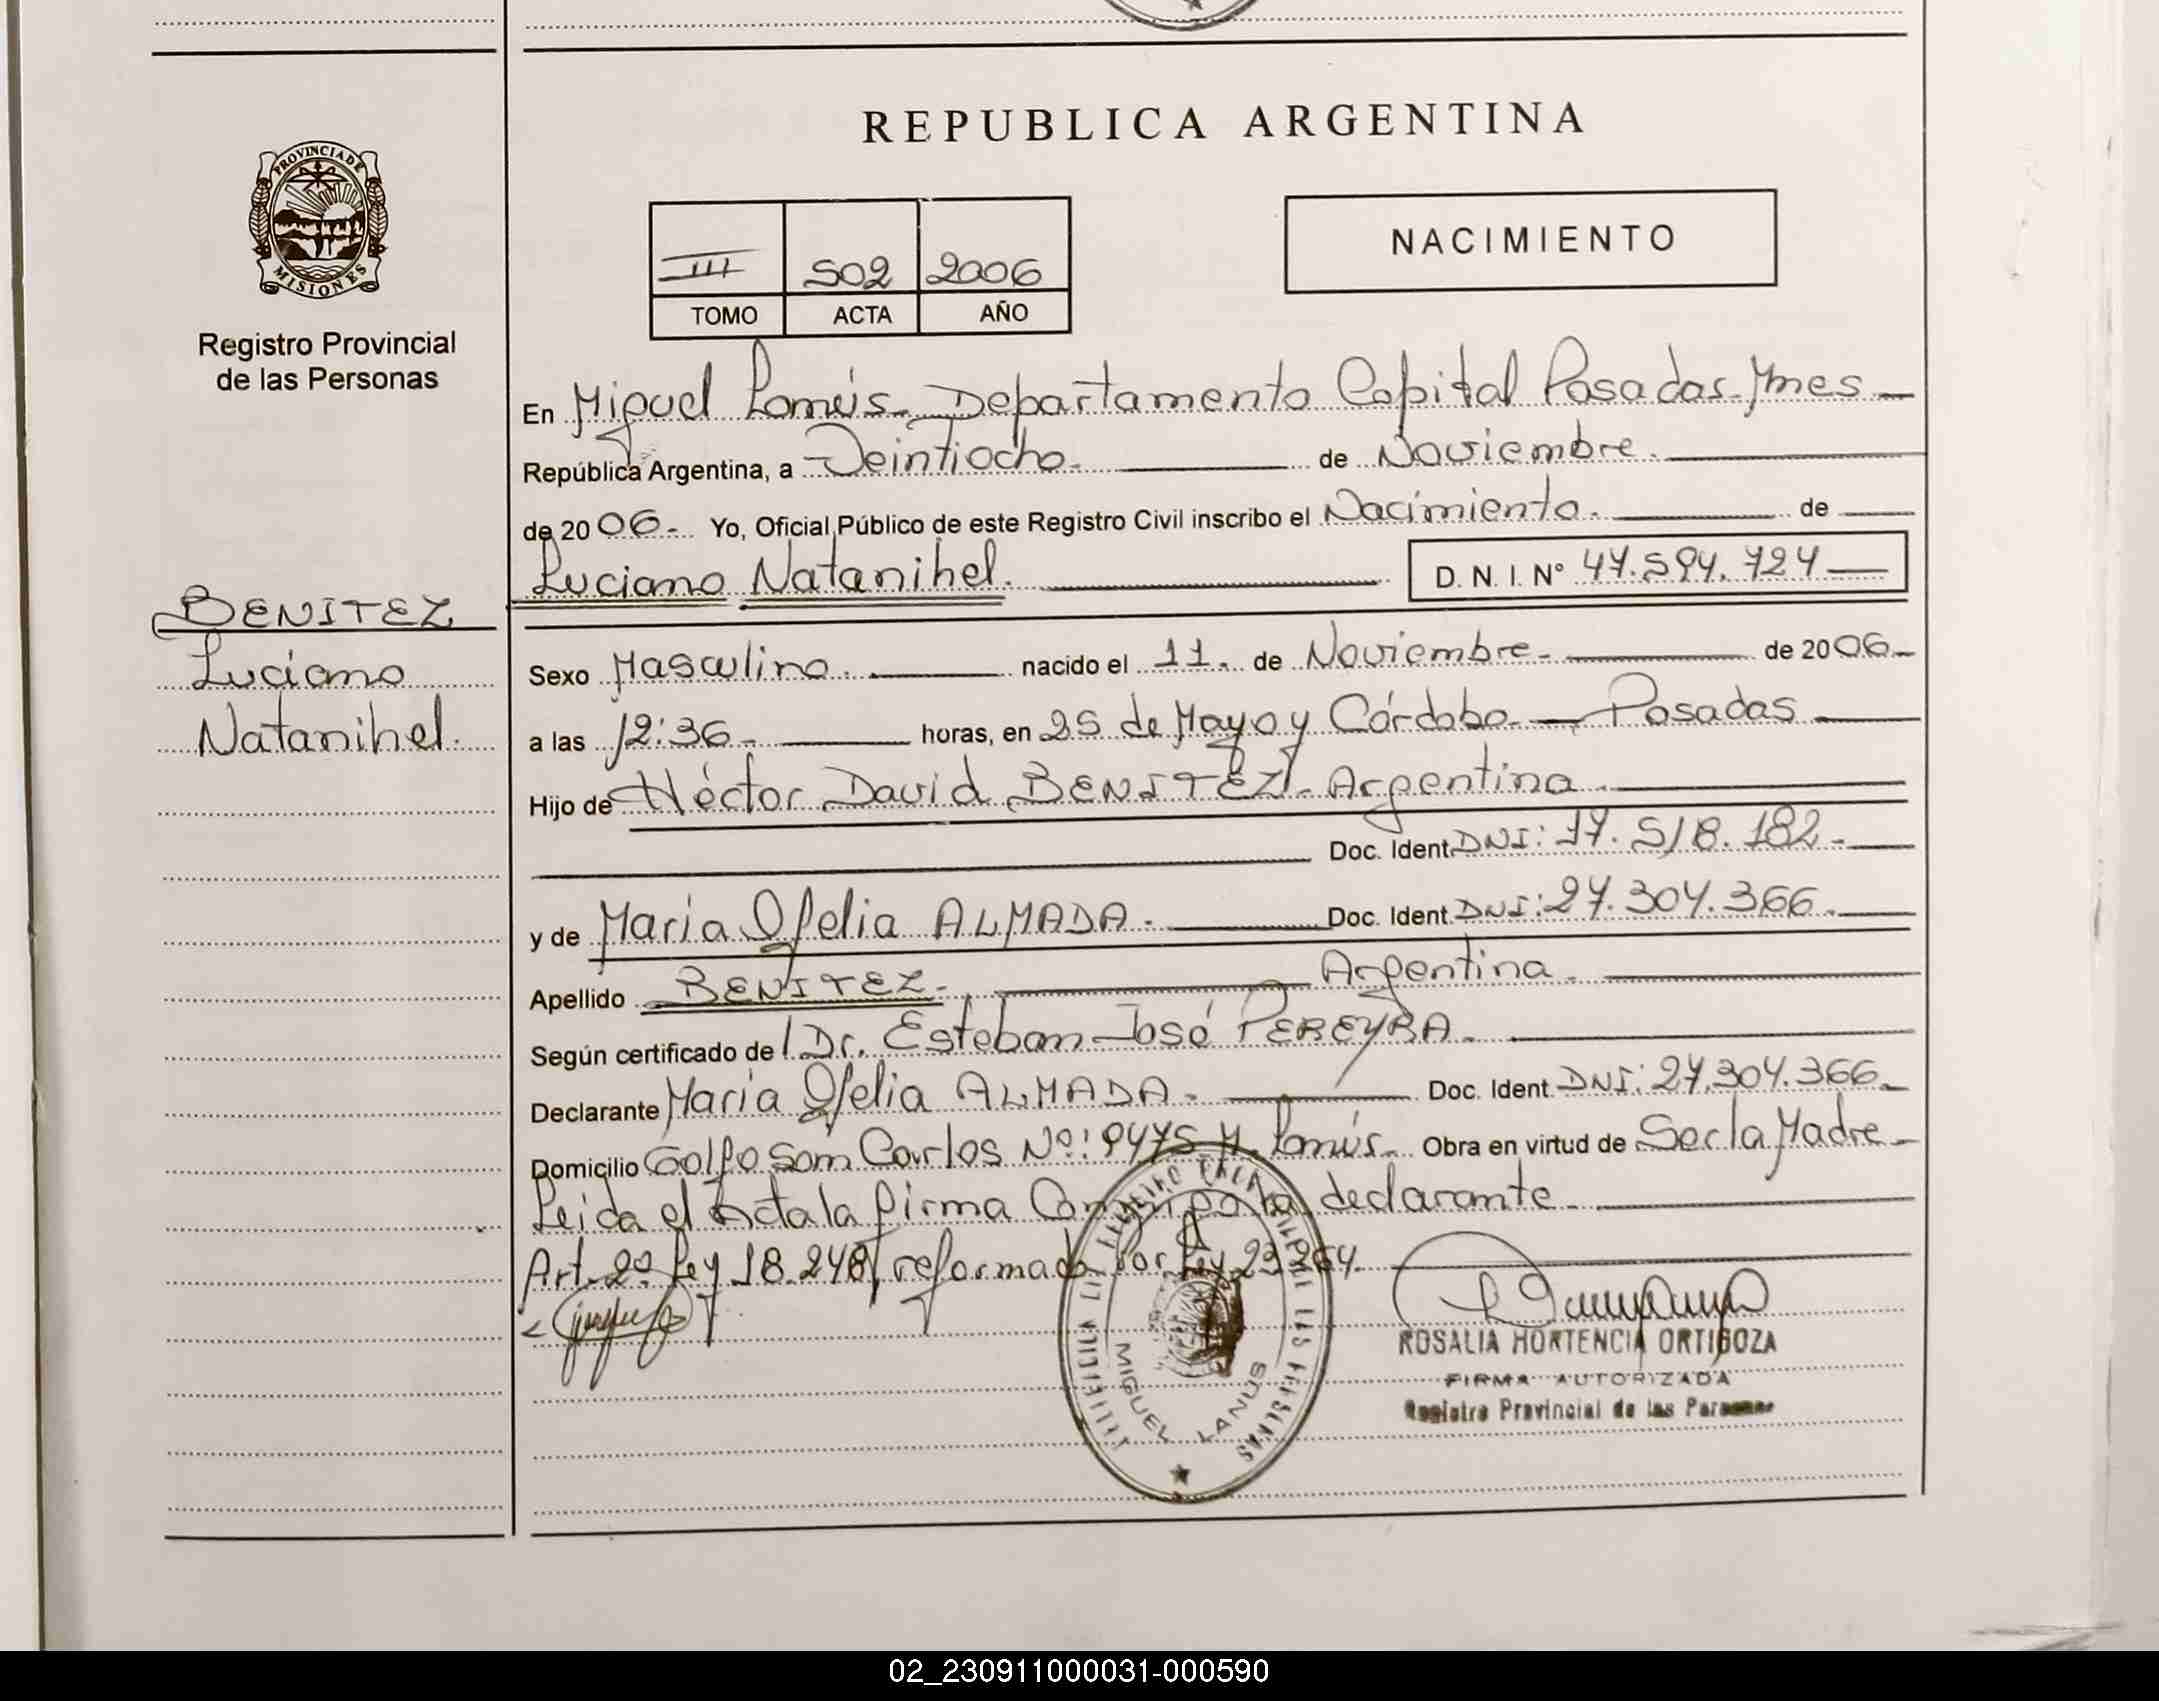 REPUBLICA ARGENTINA
PROVINCIA DE
MISIONES
Registro Provincial
de las Personas
III 502 2006
TOMO ACTA AÑO
NACIMIENTO
En Miguel Lanús - Departamento Capital Posadas - Mnes -
República Argentina, a Veintiocho. de Noviembre.
de 20 06 - Yo, Oficial Público de este Registro Civil inscribo el Nacimiento. de
Luciano Natanihel. D. N. I. N° 47.594.724
BENITEZ
Luciano
Natanihel.
Sexo Masculino. nacido el 11. de Noviembre - de 20 06 -
a las 12:36 - horas, en 25 de Mayo y Córdoba - Posadas
Hijo de Héctor David BENITEZ - Argentina.
Doc. Ident. DNI: 17.518.182 -
y de María Ofelia ALMADA - Doc. Ident. DNI: 27.304.366 -
Apellido BENITEZ - Argentina -
Según certificado de Dr. Esteban José PEREYRA -
Declarante María Ofelia ALMADA - Doc. Ident. DNI: 27.304.366 -
Domicilio Golfo San Carlos N°: 9475 M. Lanús - Obra en virtud de Ser la Madre -
Leida el Acta la firma Conmigo la declarante -
Art. 2° Ley 18.248, reformado por Ley 23.264.
MIGUEL LANUS
ROSALIA HORTENCIA ORTIGOZA
FIRMA AUTORIZADA
Registro Provincial de las Personas
02_230911000031-000590